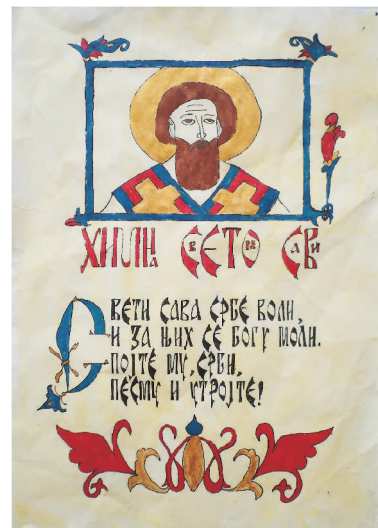 ХИМНА СВЕТОМ САВИ
СВЕТИ САВА СРБЕ ВОЛИ,
И ЗА ЊИХ СЕ БОГУ МОЛИ.
ПОЈТЕ МУ, СРБИ,
ПЕСМУ И УТРОЈТЕ!